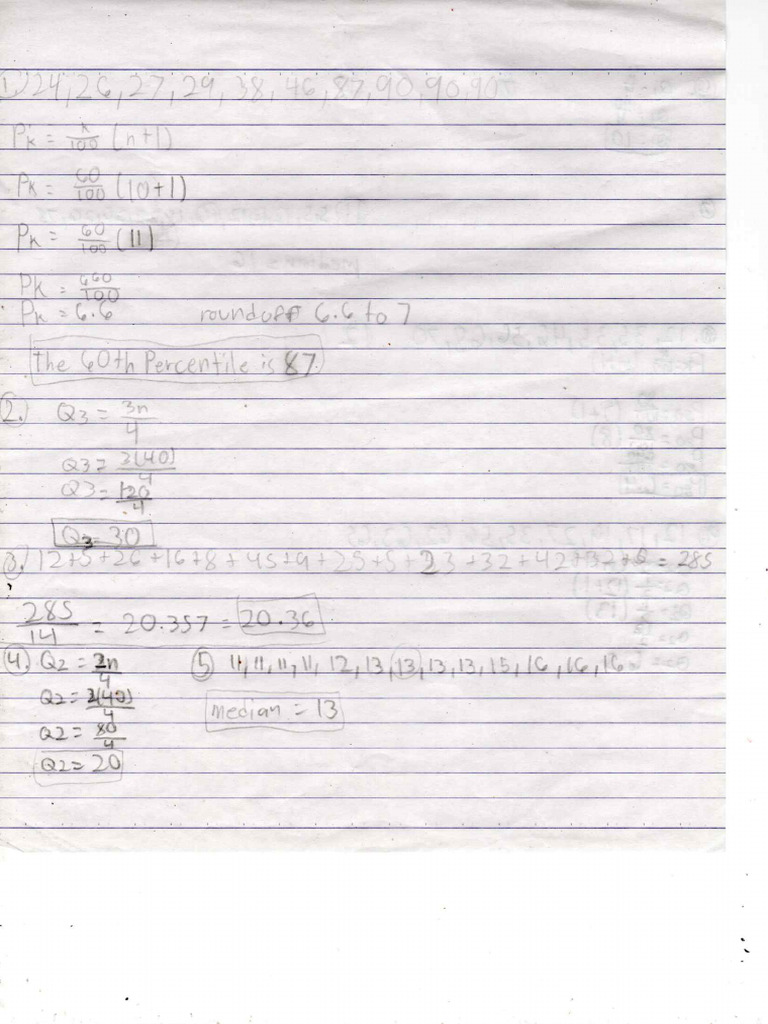 1.) 24, 26, 27, 29, 38, 46, 87, 90, 90, 90
Pk = k/100 (n+1)
Pk = 60/100 (10+1)
Pk = 60/100 (11)
Pk = 660/100
Pk = 6.6 roundoff 6.6 to 7
the 60th Percentile is 87
2. Q3 = 3n/4
Q3 = 3(40)/4
Q3 = 120/4
Q3 = 30
3. 12+5+26+16+8+45+9+25+5+23+32+42+32+5 = 285
285/14 = 20.357 = 20.36
4 Q2 = 2n/4
Q2 = 2(40)/4
Q2 = 80/4
Q2 = 20
5 11, 11, 11, 11, 12, 13, 13, 13, 13, 15, 16, 16, 16
median = 13